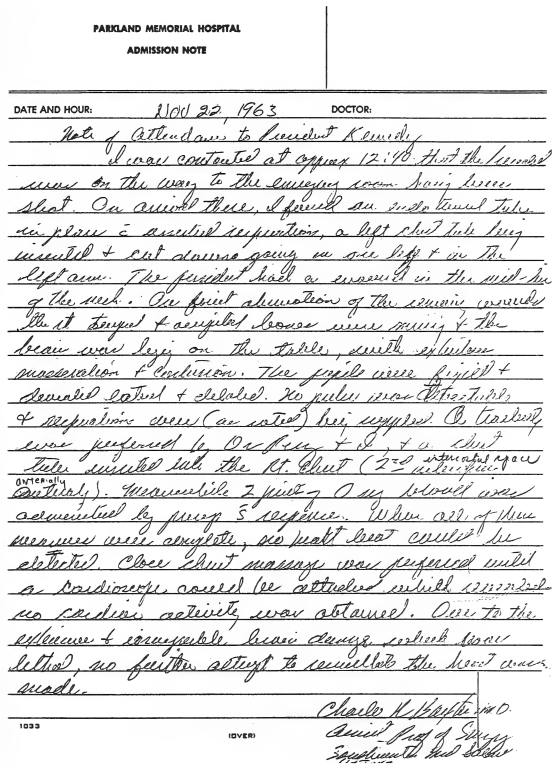 PARKLAND MEMORIAL HOSPITAL
ADMISSION NOTE
DATE AND HOUR: Nov 22, 1963 DOCTOR:
Note of Attendance to President Kennedy
I was contacted at approx 12:40 that the President
was on the way to the emergency room having been
shot. On arrival there, I found an endotracheal tube
in place c̄ assisted respirations, a left chest tube being
inserted & cut downs going in one leg & in the
left arm. The President had a wound in the mid-line
of the neck. On first observation of the remaining wounds
the rt temporal & occipital bones were missing & the
brain was lying on the table, with extensive
maceration & contusion. The pupils were fixed &
deviated lateral & dilated. No pulse was detectable
& respirations were (as noted) being supplied. A tracheotomy
was performed by Dr Perry & I, & a chest
tube inserted into the Rt. Chest (2nd intercostal space
anteriorly). Meanwhile 2 pints of O neg blood was
administered by pump s̄ response. When all of these
measures were complete, no heart beat could be
detected. Close chest massage was performed until
a cardioscope could be attached which
no cardiac activity was obtained. Due to the
extensive & irreparable brain damage which was
lethal, no further attempt to resuscitate the heart was
made.
Charles R Baxter M.D.
Assist Prof of Surgery
Southwestern Med School
1033 (OVER)